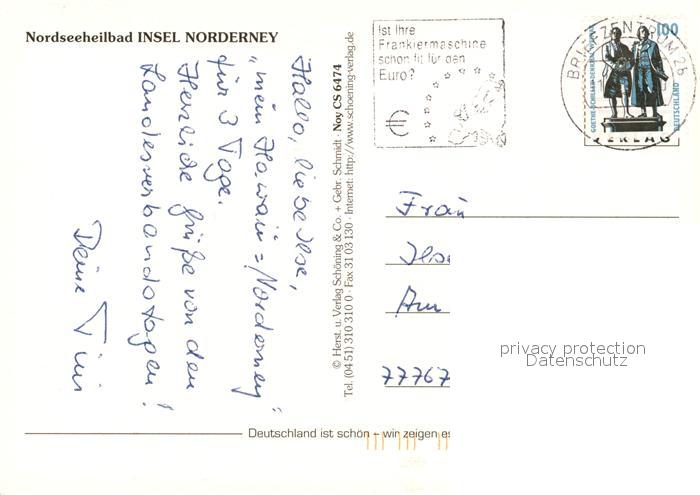 Nordseeheilbad INSEL NORDERNEY
Hallo, liebe Ilse,
"mein Hawaii = Norderney"
für 3 Tage.
Herzliche Grüße von den
Landesverbandstagen!
Deine Tini
© Herst. u. Verlag Schöning & Co. + Gebr. Schmidt · Noy CS 6474
Tel. (04 51) 310 310 0 · Fax 31 03 130 · Internet: http://www.schoening-verlag.de
Ist Ihre
Frankiermaschine
schon fit für den
Euro?
€
BRIEFZENTRUM 26
100
GOETHE-SCHILLER-DENKMAL
DEUTSCHLAND
VERLAG
Frau
Ilse
Am
77767
privacy protection
Datenschutz
Deutschland ist schön – wir zeigen es